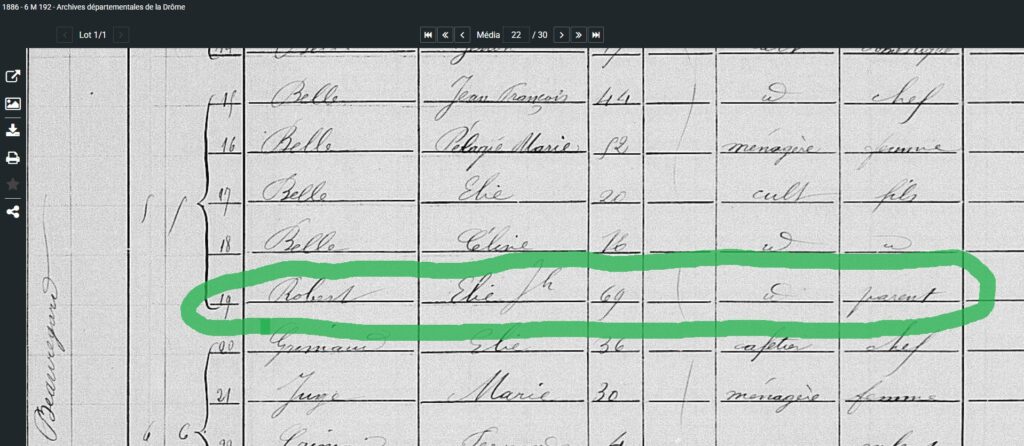 1886 - 6 M 192 - Archives départementales de la Drôme
Lot 1/1
Média 22 / 30
15 Belle Jean François 44 id chef
16 Belle Pélagie Marie 52 ménagère femme
5 5 17 Belle Elie 20 cult fils
18 Belle Céline 16 id id
19 Robert Elie Jh 69 id parent
Beauregard
20 Grimaud Elie 36 cafetier chef
21 Juge Marie 30 ménagère femme
6 6